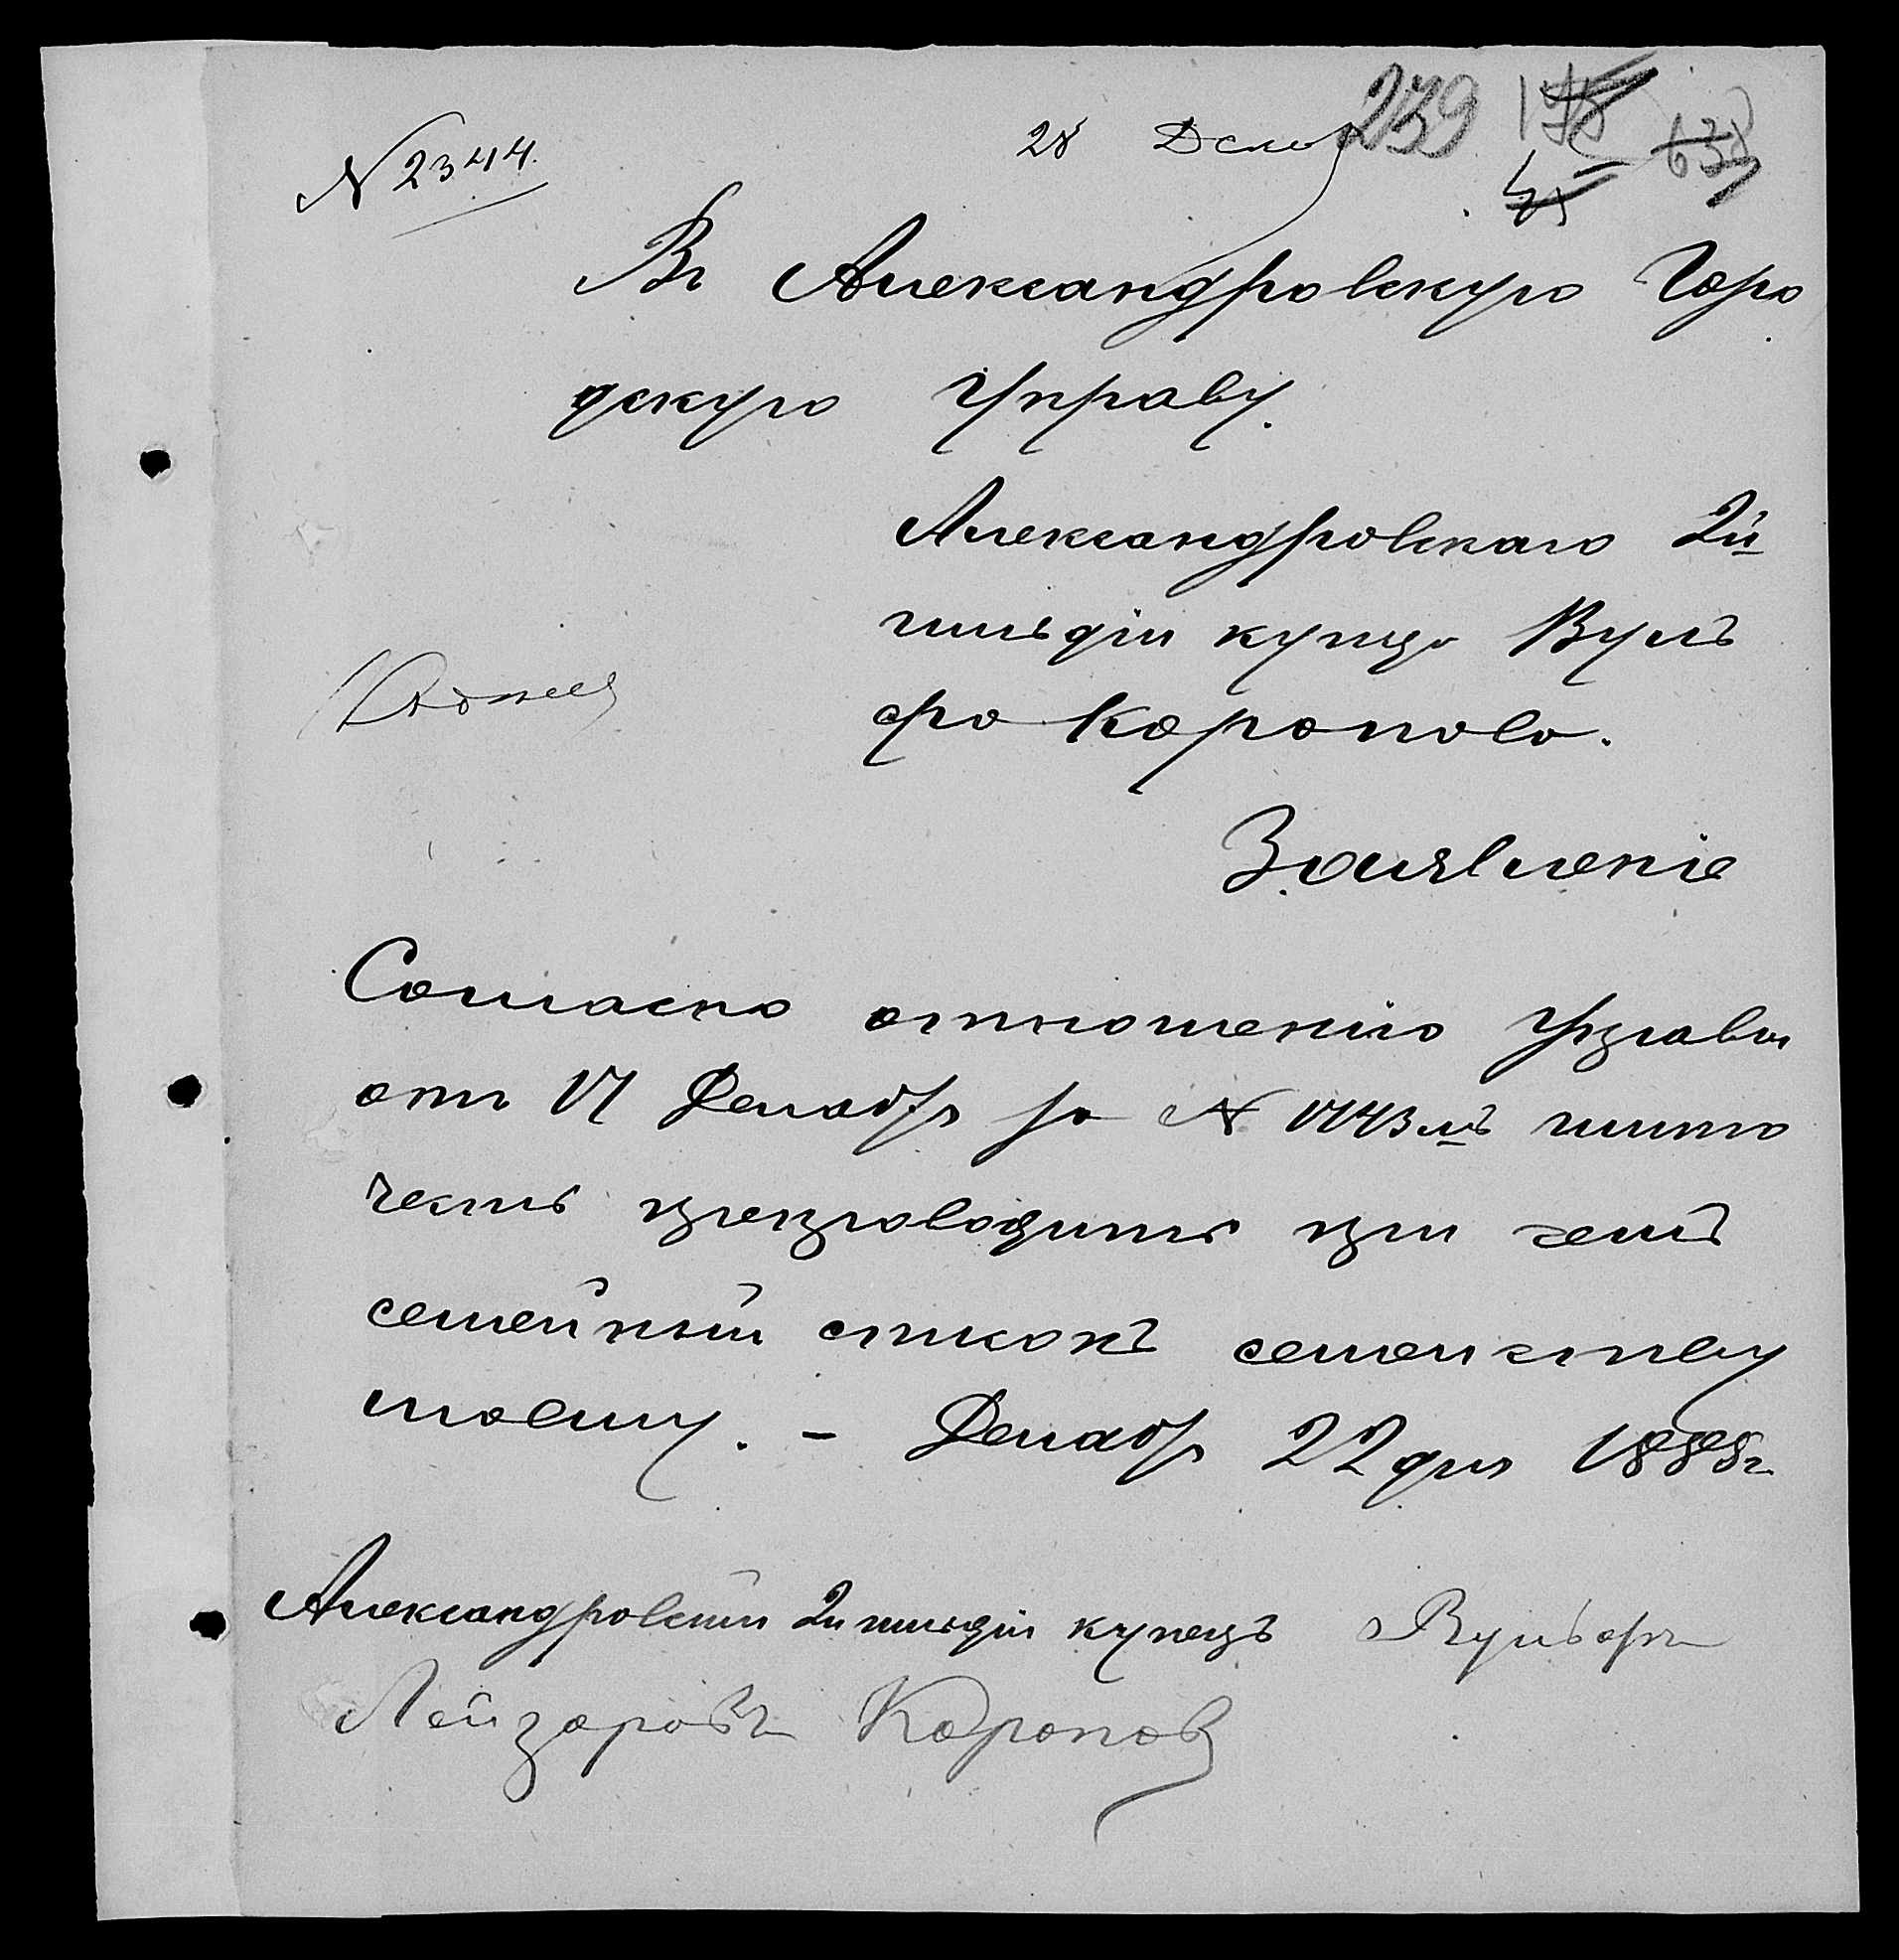 239 178 638
N 2344. 28 Декаб
Въ Александровскую Горо
дскую Управу.
Александровскаго 2й
гильдіи купца Вуль
фа Карапова.
Заявленіе
Согласно отношенію Управы
отъ 17 Декабр за N 1743мъ имѣю
честь препроводить при семъ
семейный списокъ семейству
моему. – Декабр 22 дня 1888г.
Александровскій 2й гильдіи купецъ Вульфъ
Лейзаровъ Карапов